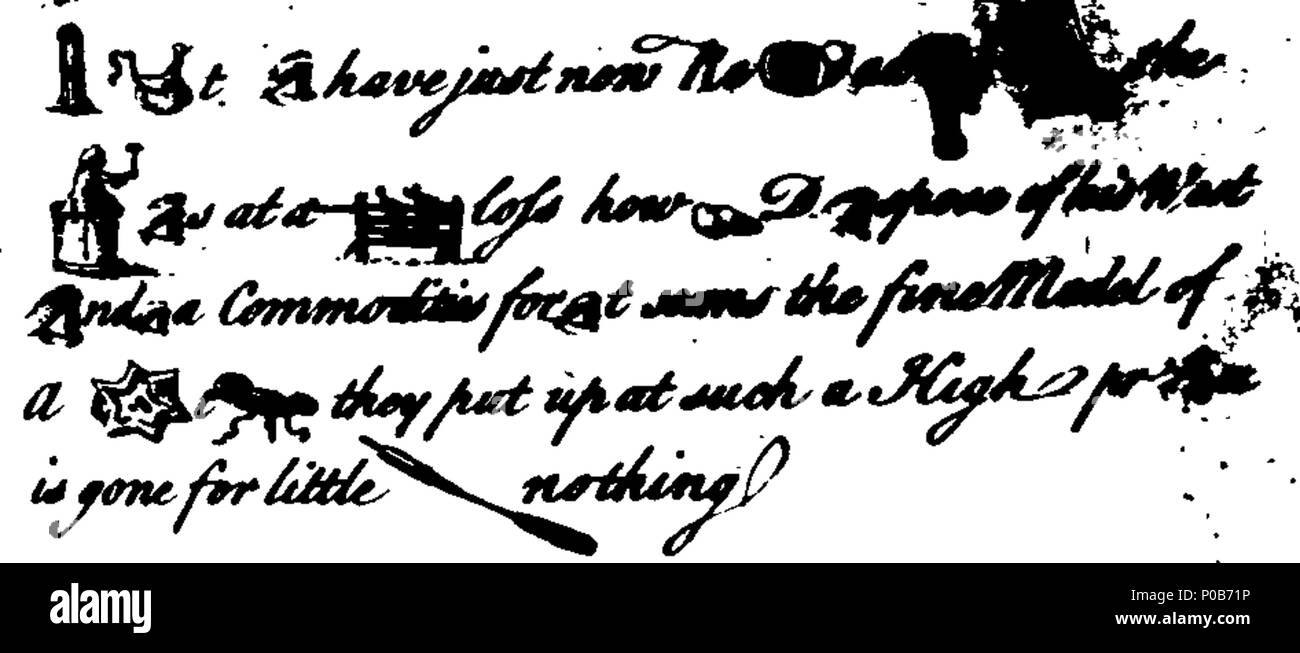 t I have just now Re the
Is at a loſs how D I spose of his West
India Commodities for It seems the fine Model of
a they put up at such a High
is gone for little nothing
alamy
Image ID: P0B71P
www.alamy.com